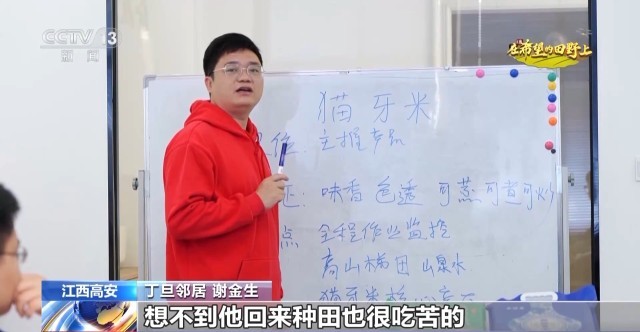 CCTV 13
新闻
在希望的田野上
猫牙米
位 主推产品
味香 色透 可蒸可煮可炒
点 全程作业监控
高山梯田 山泉水
猫牙米核心产区
江西高安 丁旦邻居 谢金生
想不到他回来种田也很吃苦的